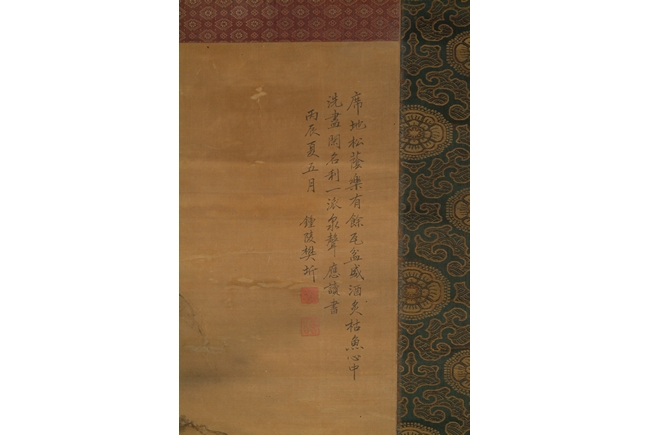 席地松蔭樂有餘瓦盆盛酒炙枯魚心中
洗盡閒名利一派泉聲應讀書
丙辰夏五月　鍾陵樊圻